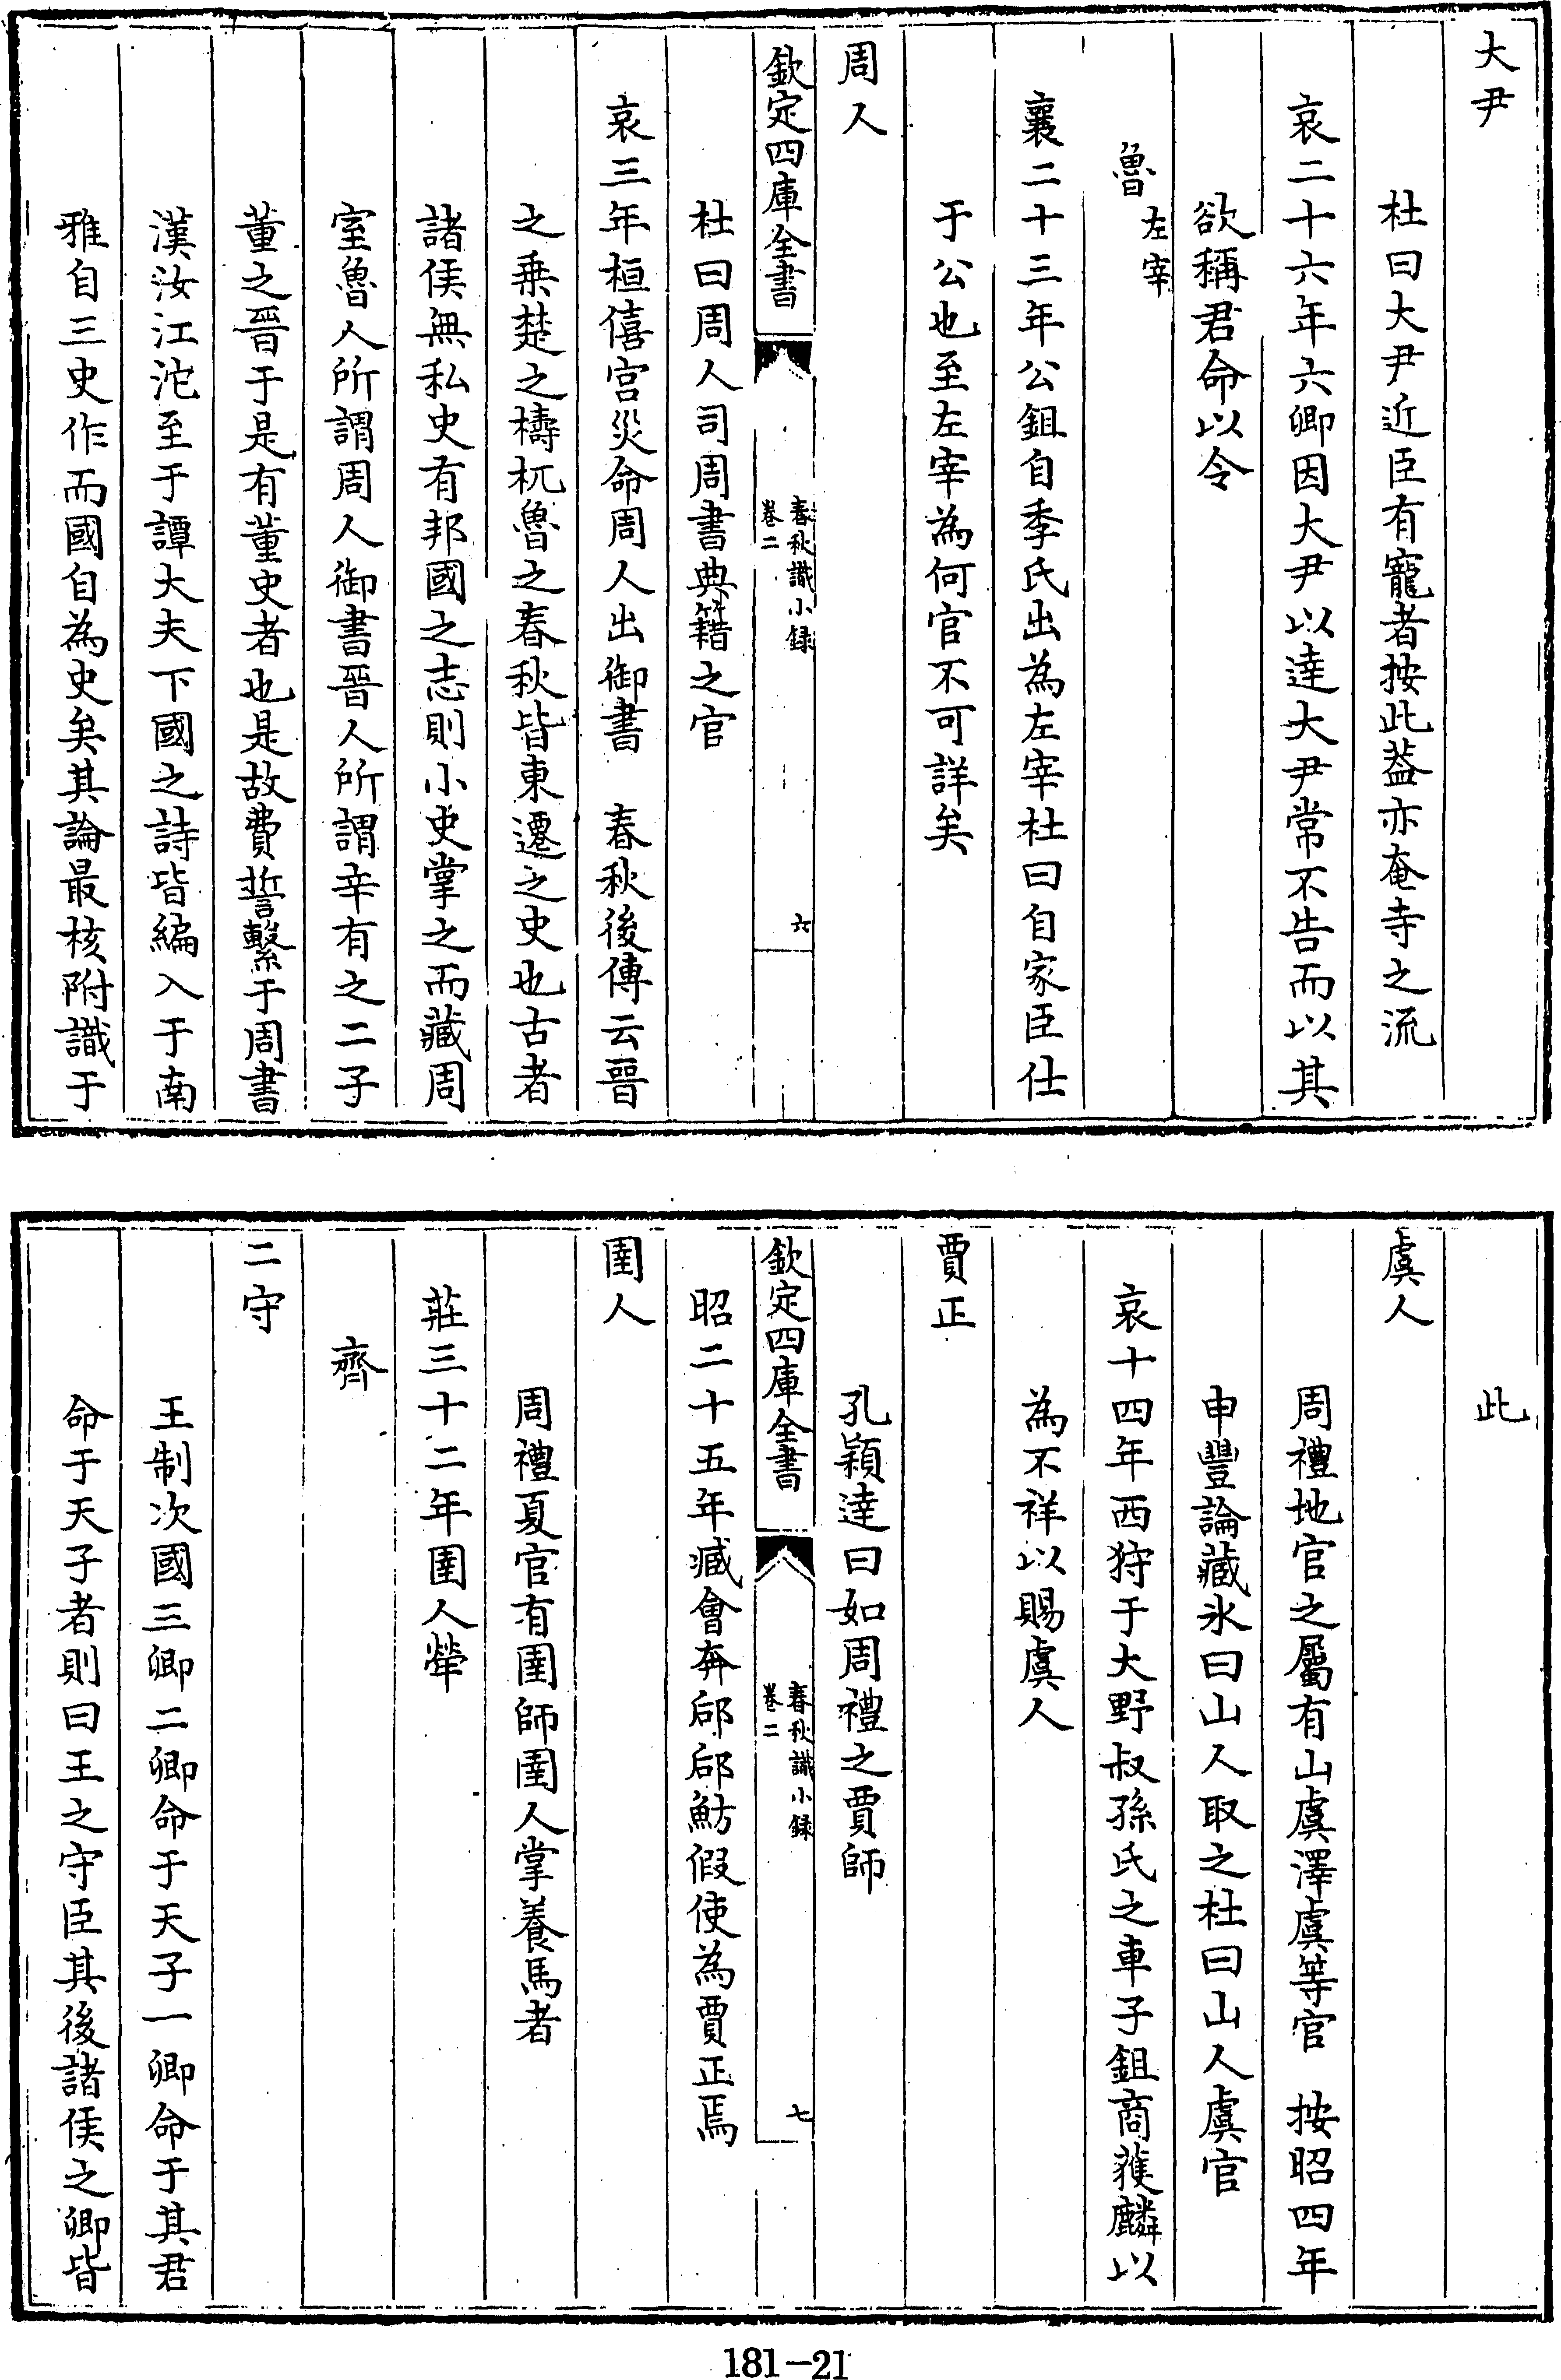 大尹
杜曰大尹近臣有寵者按此葢亦奄寺之流
哀二十六年六卿因大尹以達大尹常不告而以其
欲稱君命以令
魯
左宰
襄二十三年公鉏自季氏出為左宰杜曰自家臣仕
于公也至左宰為何官不可詳矣
周人
欽定四庫全書
春秋識小録
卷二
六
杜曰周人司周書典籍之官
哀三年桓僖宫災命周人出御書　春秋後傳云晉
之乗楚之檮杌魯之春秋皆東遷之史也古者
諸侯無私史有邦國之志則小史掌之而藏周
室魯人所謂周人御書晉人所謂辛有之二子
董之晉于是有董史者也是故費誓繫于周書
漢汝江沱至于譚大夫下國之詩皆編入于南
雅自三史作而國自為史矣其論最核附識于
此
虞人
周禮地官之屬有山虞澤虞等官　按昭四年
申豐論藏氷曰山人取之杜曰山人虞官
哀十四年西狩于大野叔孫氏之車子鉏商獲麟以
為不祥以賜虞人
賈正
孔穎達曰如周禮之賈師
欽定四庫全書
春秋識小録
卷二
七
昭二十五年臧會奔郈郈魴假使為賈正焉
圉人
周禮夏官有圉師圉人掌養馬者
莊三十二年圉人犖
齊
二守
王制次國三卿二卿命于天子一卿命于其君
命于天子者則曰王之守臣其後諸侯之卿皆
181-21